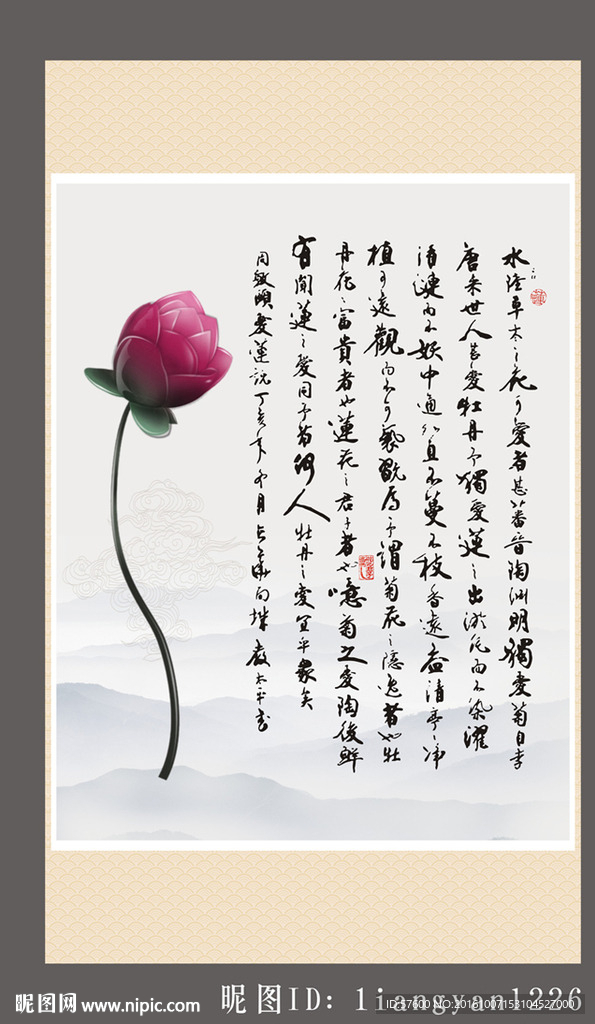 水陸草木之花可愛者甚蕃晉陶淵明獨愛菊自李
唐来世人甚愛牡丹予獨愛蓮之出淤泥而不染濯
清漣而不妖中通外直不蔓不枝香遠益清亭亭净
植可遠觀而不可褻翫焉予謂菊花之隱逸者也牡
丹花之富貴者也蓮花之君子者也噫菊之愛陶後鮮
有聞蓮之愛同予者何人牡丹之愛宜乎衆矣
周敦頤愛蓮説丁亥年
昵图网 www.nipic.com
昵图ID: liangyan1226
ID:57600 NO:20181007153104527000